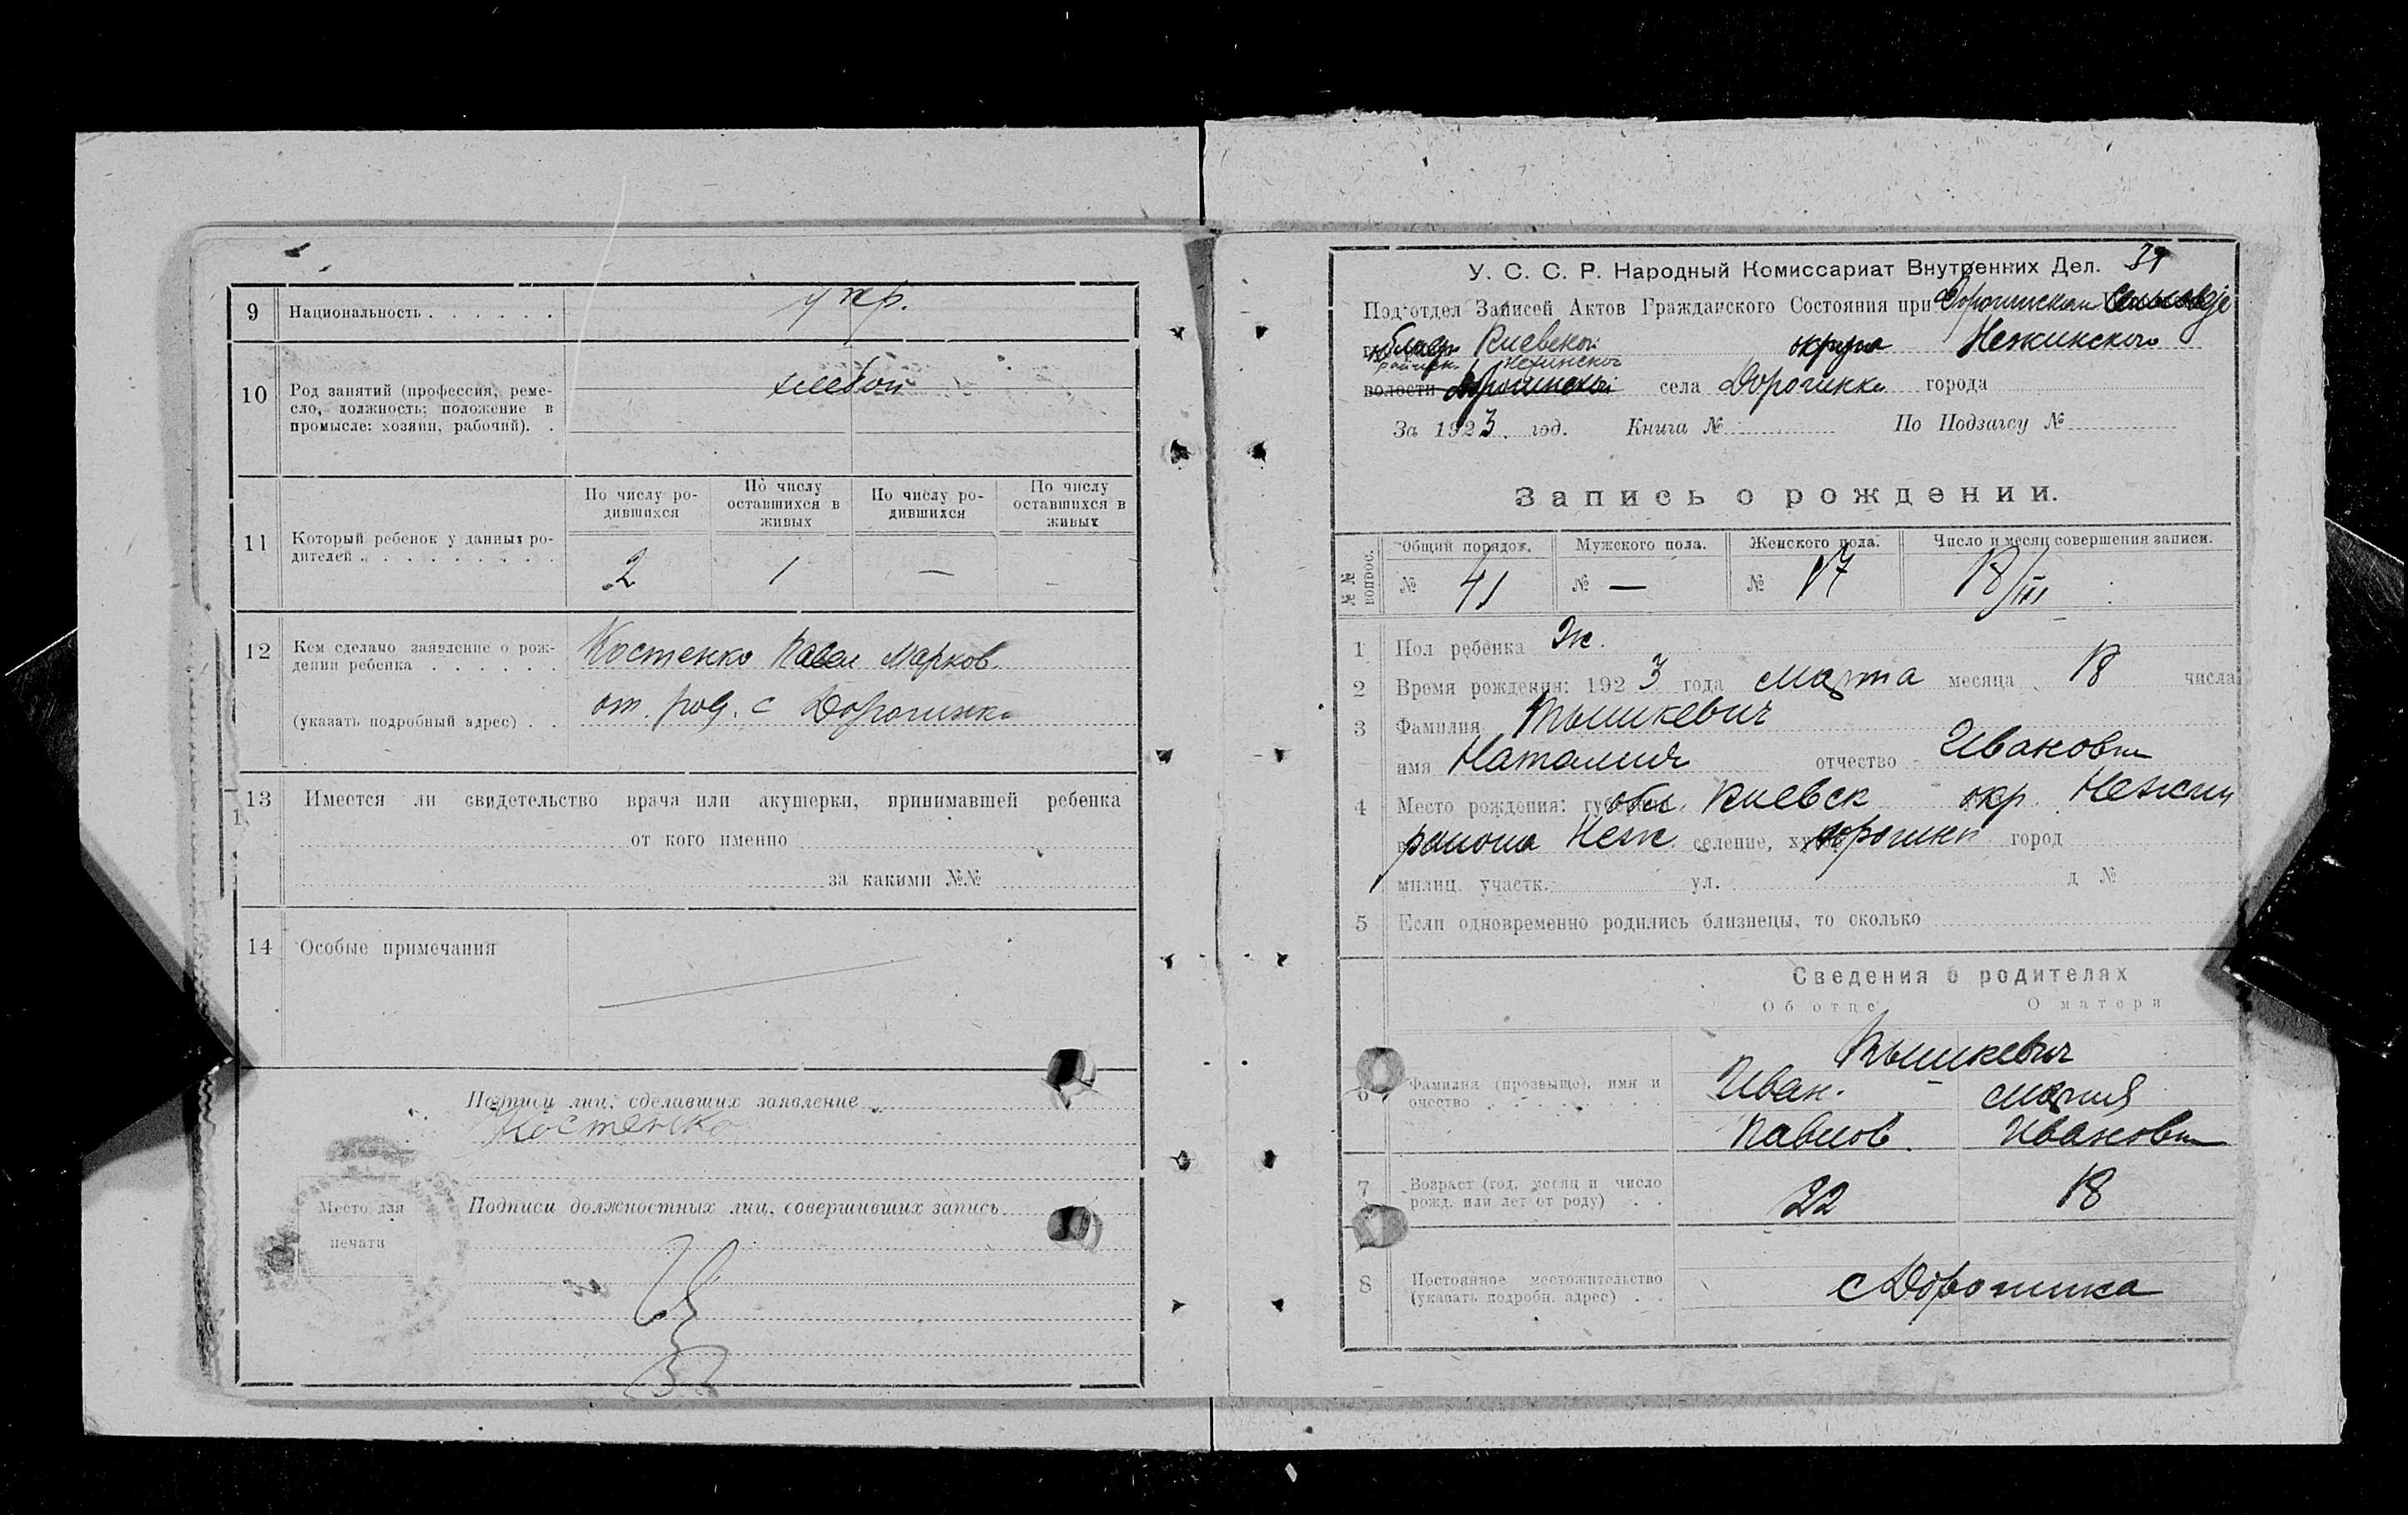 9 Национальность . . . . . . укр.
10 Род занятий (профессия, реме-
сло, должность; положение в
промысле: хозяин, рабочий). .
хлебоп
11 Который ребенок у данных ро-
дителей . . . . . . . . . .
По числу ро-
дившихся
По числу
оставшихся в
живых
По числу ро-
дившихся
По числу
оставшихся в
живых
2 1 — –
12 Кем сделано заявление о рож-
дении ребенка . . . . . .
Костенко Павел Марков.
(указать подробный адрес) . .
от. род. с Дорогинка
13 Имеется ли свидетельство врача или акушерки, принимавшей ребенка
от кого именно
за какими №№
14 Особые примечания
Подписи лиц, сделавших заявление
Костенко
Подписи должностных лиц, совершивших запись
Место для
печати
У. С. С. Р. Народный Комиссариат Внутренних Дел. 39
Подотдел Записей Актов Гражданского Состояния при Дорогинском
Киевской округа Нежинского
Нежинского
волости села Дорогинка города
За 1923 год. Книга № По Подзагсу №
Запись о рождении.
№№ вопрос.
Общий порядок. Мужского пола. Женского пола. Число и месяц совершения записи.
№ 41 № — № 17 18/III
1 Пол ребенка Ж.
2 Время рождения: 1923 года марта месяца 18 числа
3 Фамилия Тышкевич
имя Наталия отчество Ивановн
4 Место рождения: обл Киевск окр. Нежин
района Неж. селение, Дорогинк город
милиц. участк. ул. д №
5 Если одновременно родились близнецы, то сколько
Сведения о родителях
Об отце О матери
6 Фамилия (прозвыще), имя и
очество . . . . . . . . .
Тышкевич
Иван. – Мария
Павлов. Ивановн
7 Возраст (год, месяц и число
рожд. или лет от роду) . .
22 18
8 Постоянное местожительство
(указать подробн. адрес) . .
с Дорогинка